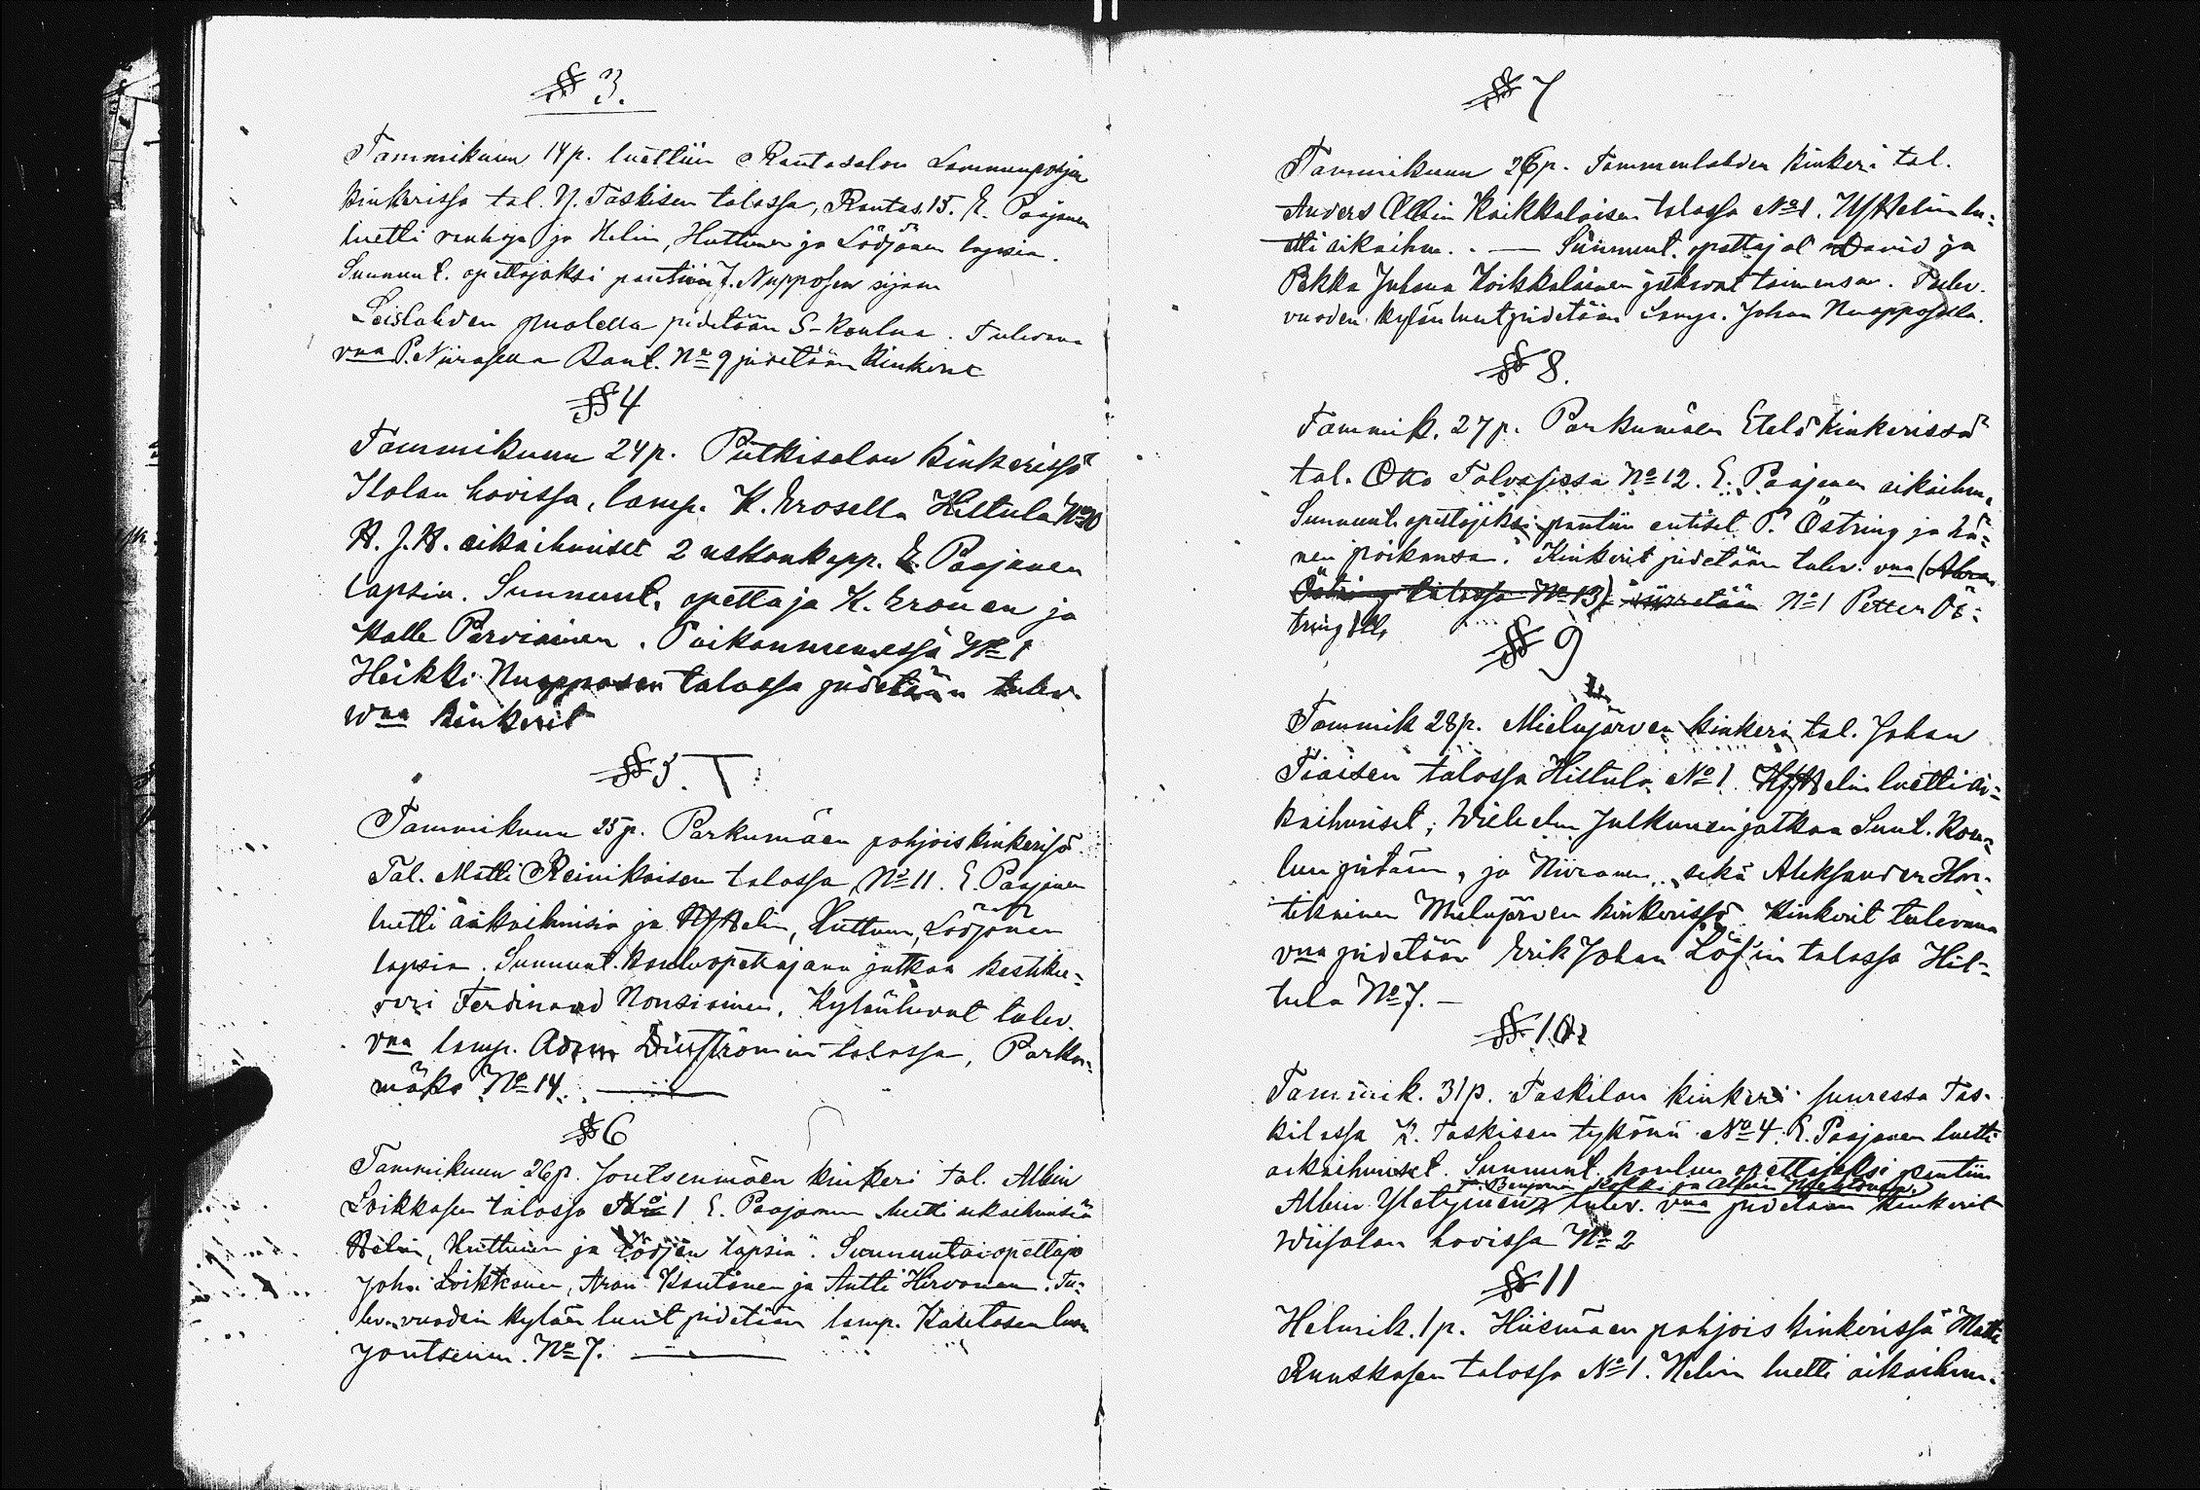 § 3.
Tammikuun 14 p. luettiin Rantasalon Lammunpohja
kinkerissa tal. N. Taskisen talossa, Rantas. 15. E. Paajanen
luetti vanhoja ja Helin, Huttunen ja Lödjönen lapsia.
Sunnunt. opettajaksi pantiin J. Nupposen sijaan
Leislahden puolella pidetään S-koulua. Tulevana
vna P. Niirasella Rant. No 9 pidetään kinkerit
§ 4
Tammikuun 24 p. Putkisalon kinkerissä
Itolan hovissa, lamp. K. Erosella Hiltula No 10
H. J. H. aikaihmiset 2 uskonkapp. E. Paajanen
lapsia. Sunnunt. opettaja K. Eronen ja
Kalle Parviainen. Poikanniemessä No 1
Heikki Nupposen talossa pidetään tulev.
wna kinkerit
§ 5.
Tammikuun 25 p. Parkumäen pohjoiskinkerisä
Tal. Matti Reinikaisen talossa, No 11. E. Paajanen
luetti aikaihmisiä ja HJHelin, Huttunen, Lödjönen
lapsia. Sunnunt. kouluopettajana jatkaa kestike=
vari Ferdinand Nousiainen. Kylänluvut tulev.
vna lamp. Adam Dunströmin talossa, Parku=
mäks No 14.
§ 6
Tammikuun 26 p. Joutsenmäen kinkeri tal. Albin
Loikkasen talossa No 1 E. Paajanen luetti aikaihmisiä
Helin, Huttunen ja Lödjön lapsia. Sunnuntai opettaja
Joh. Loikkanen, Aron Kautonen ja Antti Hirvonen. Tu=
lev. vuoden kylän luut pidetään lamp. Kautosen luon
Joutsenm. No 7.
§ 7
Tammikuun 26 p. Tammenlahden kinkeri tal.
Anders Albin Koikkalaisen talossa No 1. HJHelin lu=
etti aikaihm. — Sunnunt. opettajat David ja
Pekka Juhana Koikkalainen jatkavat toimensa. Tulev.
vuoden kylän luut pidetään lamp. Johan Nupposella.
§ 8.
Tammik. 27 p. Parkumäen Etelä kinkerissä
tal. Otto Talvasessa No 12. E. Paajanen aikaihm.
Sunnunt. opettajiksi pantiin entiset P. Östring ja hä=
nen poikansa. Kinkerit pidetään tulev. vna (Abra
Östring talossa No 13) siirretään No 1 Petter Ös=
tringillä
§ 9
Tammik 28 p. Mielujärven kinkeri tal. Johan
Tiaisen talossa Hiltula No 1. HJHelin luetti ai=
kaihmiset; Wilhelm Julkunen jatkaa Sunt. kou=
lun pitäm, ja Niiranen sekä Aleksander Har=
tikainen Mielujärven kinkerissä. Kinkerit tulevana
vna pidetään Erik Johan Löf'in talossa Hil=
tula No 7. —
§ 10
Tammik. 31 p. Taskilan kinkeri Suuressa Tas=
kilassa K. Taskisen tykönä No 4. E. Paajanen luetti
aikaihmiset. Sunnunt. koulun opettajaksi pantiin
ja Benjamin Kokki ja Alfred
Albin Yletyinen, tulev. vna pidetään kinkerit
Wiisalan hovissa No 2
§ 11
Helmik. 1 p. Hiismäen pohjois kinkerissä Matti
Ruuskasen talossa No 1. Helin luetti aikaihm.